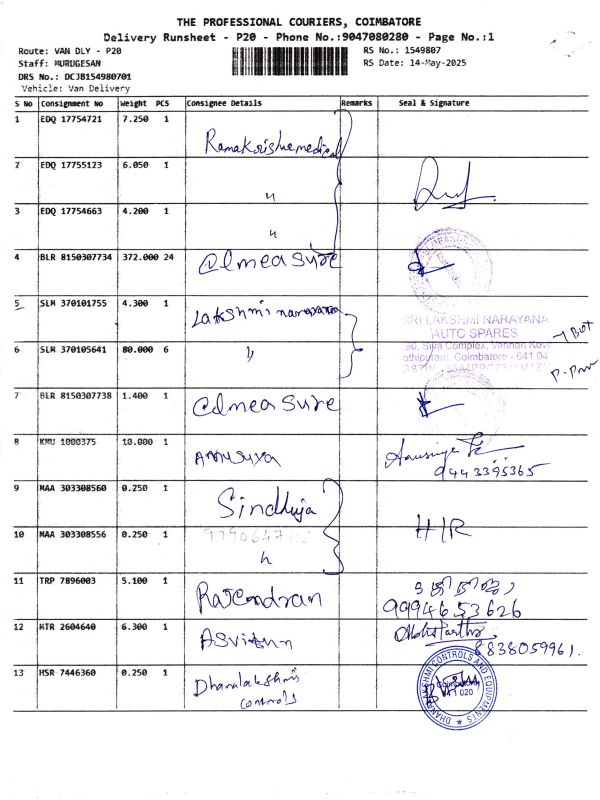 THE PROFESSIONAL COURIERS, COIMBATORE
Delivery Runsheet - P20 - Phone No.:9047080280 - Page No.:1
Route: VAN DLY - P20
RS No.: 1549807
Staff: MURUGESAN
RS Date: 14-May-2025
DRS No.: DCJB154980701
Vehicle: Van Delivery
S No Consignment No Weight PCS Consignee Details Remarks Seal & Signature
1 EDQ 17754721 7.250 1
Ramakrishna medical
2 EDQ 17755123 6.050 1 "
3 EDQ 17754663 4.200 1 "
4 BLR 8150307734 372.000 24 @lmeasure
5 SLM 370101755 4.300 1 Lakshmi narayana
SRI LAKSHMI NARAYANA
AUTO SPARES
90, Siva Complex, Vannan Kovil
othipuram, Coimbatore - 641 04
6 SLM 370105641 80.000 6 "
7 BLR 8150307738 1.400 1 @lmeasure
8 KMU 1000375 10.000 1 Anusuya
9443395365
9 MAA 303308560 0.250 1 Sindhuja
H/R
10 MAA 303308556 0.250 1 "
11 TRP 7896003 5.100 1 Rajendran
9994653626
12 MTR 2604640 6.300 1 Asvithn
8838059961.
13 HSR 7446360 0.250 1 Dhanalakshmi
controls
DHANALAKSHMI CONTROLS AND EQUIPMENTS